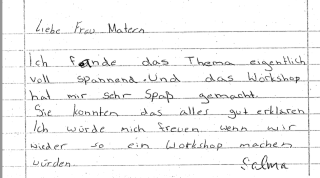 Liebe Frau Matern
Ich fande das Thema eigentlich
voll spannend. Und das Workshop
hat mir sehr Spaß gemacht.
Sie konnten das alles gut erklären
Ich würde mich freuen wenn wir
wieder so ein Workshop machen
würden.
Salma